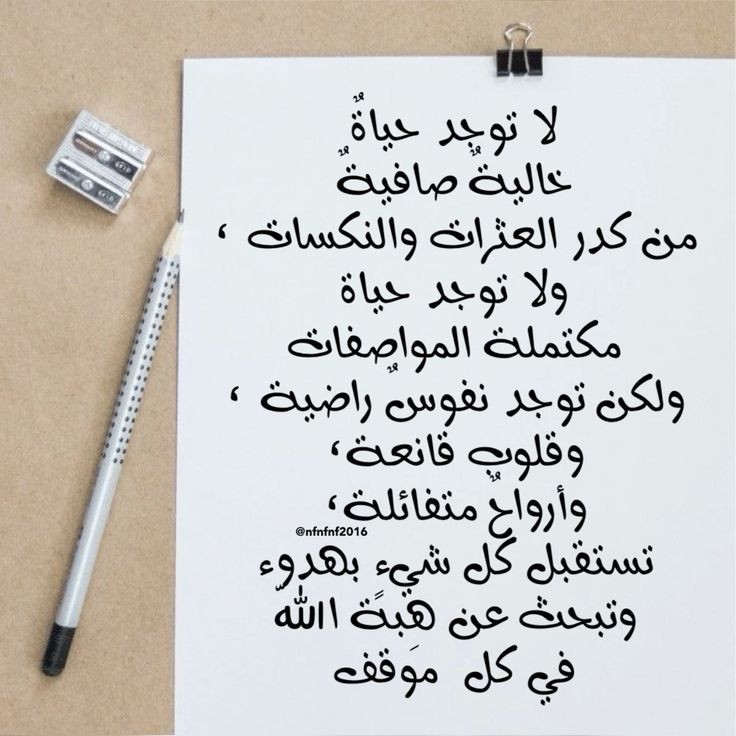 لا توجد حياةٌ
خاليةٌ صافيةٌ
من كدر العثرات والنكسات ،
ولا توجد حياة
مكتملة المواصفات
ولكن توجد نفوسٌ راضية ،
وقلوب قانعة،
وأرواحٌ متفائلة،
@nfnfnf2016
تستقبل كُل شيء بهدوء
وتبحث عن هَبةً الله
في كل مَوقف